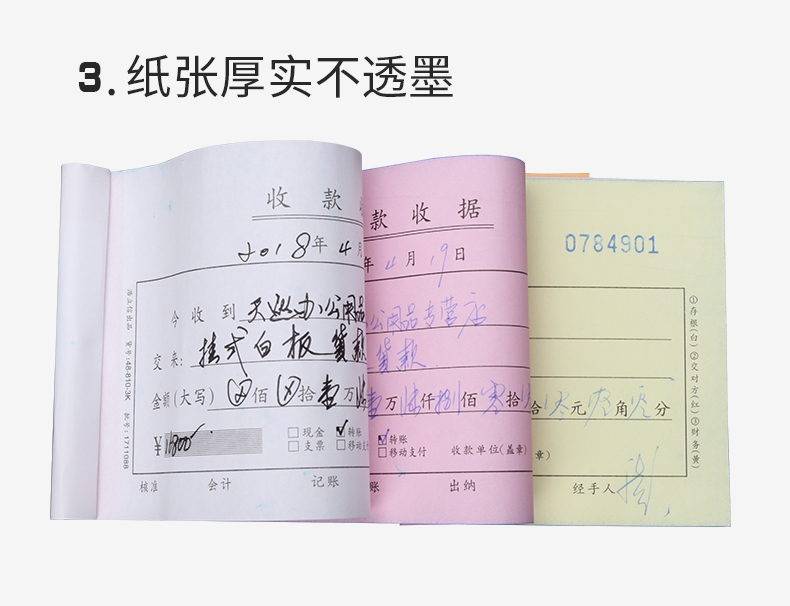 3.纸张厚实不透墨
收款
款收据
0784901
2018年4月
年4月19日
今收到 天巡办公用品
公用品专营店
交来: 挂式白板货款
货款
金额(大写) 佰 拾壹万
壹万陆仟捌佰零拾
拾零元零角零分
¥16800
现金 ✓转账
支票 移动支
✓转账
移动支付
收款单位(盖章)
章)
核准 会计 记账
账 出纳
经手人
浩立信出品 货号:48-810-3K 批号:1711088
①存根(白)②交对方(红)③财务(黄)